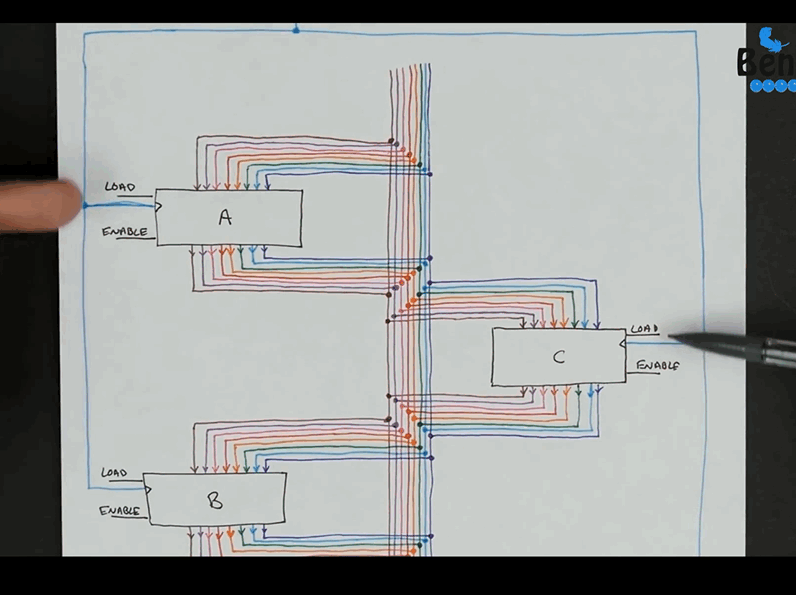 Ben
LOAD
A
ENABLE
LOAD
C
ENABLE
LOAD
B
ENABLE